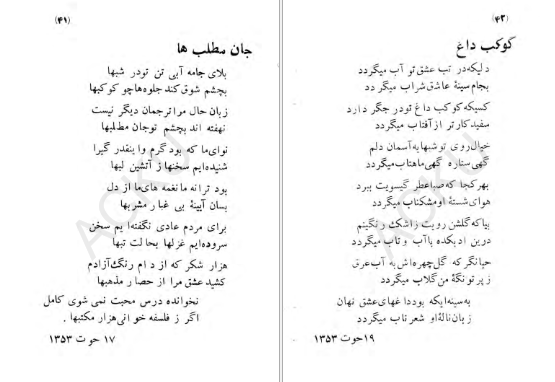 (۴۱)
جان مطلب ها
بلای جامه آبی تن تو در شبها
بچشم شوق کند جلوه‌ها چو کوکبها
زبان حال مرا ترجمان دیگر نیست
نهفته اند بچشم تو جان مطلبها
نوای ما که بود گرم و اینقدر گیرا
شنیده‌ایم سخنها ز آتشین لبها
بود ترانه ما نغمه های ما از دل
بسان آیینهٔ بی غبار مشربها
برای مردم عادی نگفته‌ایم سخن
سروده‌ایم غزلها بحالت تبها
هزار شکر که از دام رنگ آزادم
کشید عشق مرا از حصار مذهبها
نخوانده درس محبت نمی شوی کامل
اگر ز فلسفه خوانی هزار مکتبها .
۱۷ حوت ۱۳۵۳
(۴۲)
کوکب داغ
دلیکه در تب عشق تو آب میگردد
بجام سینهٔ عاشق شراب میگردد
کسیکه کوکب داغ تو در جگر دارد
سفید کارتر از آفتاب میگردد
خیال روی تو شبها به آسمان دلم
گهی ستاره گهی ماهتاب میگردد
بهر کجا که صبا عطر گیسویت ببرد
هوای شستهٔ او مشکناب میگردد
بیا که گلشن رویت ز اشک رنگینم
درین ادبکده با آب و تاب میگردد
حیا نگر که گل چهره‌اش به آب عرق
ز پرتو نگهٔ من گلاب میگردد
به سینه ایکه بود داغهای عشق نهان
زبان نالهٔ او شعر ناب میگردد
۱۹ حوت ۱۳۵۳
ACKU
ACKU